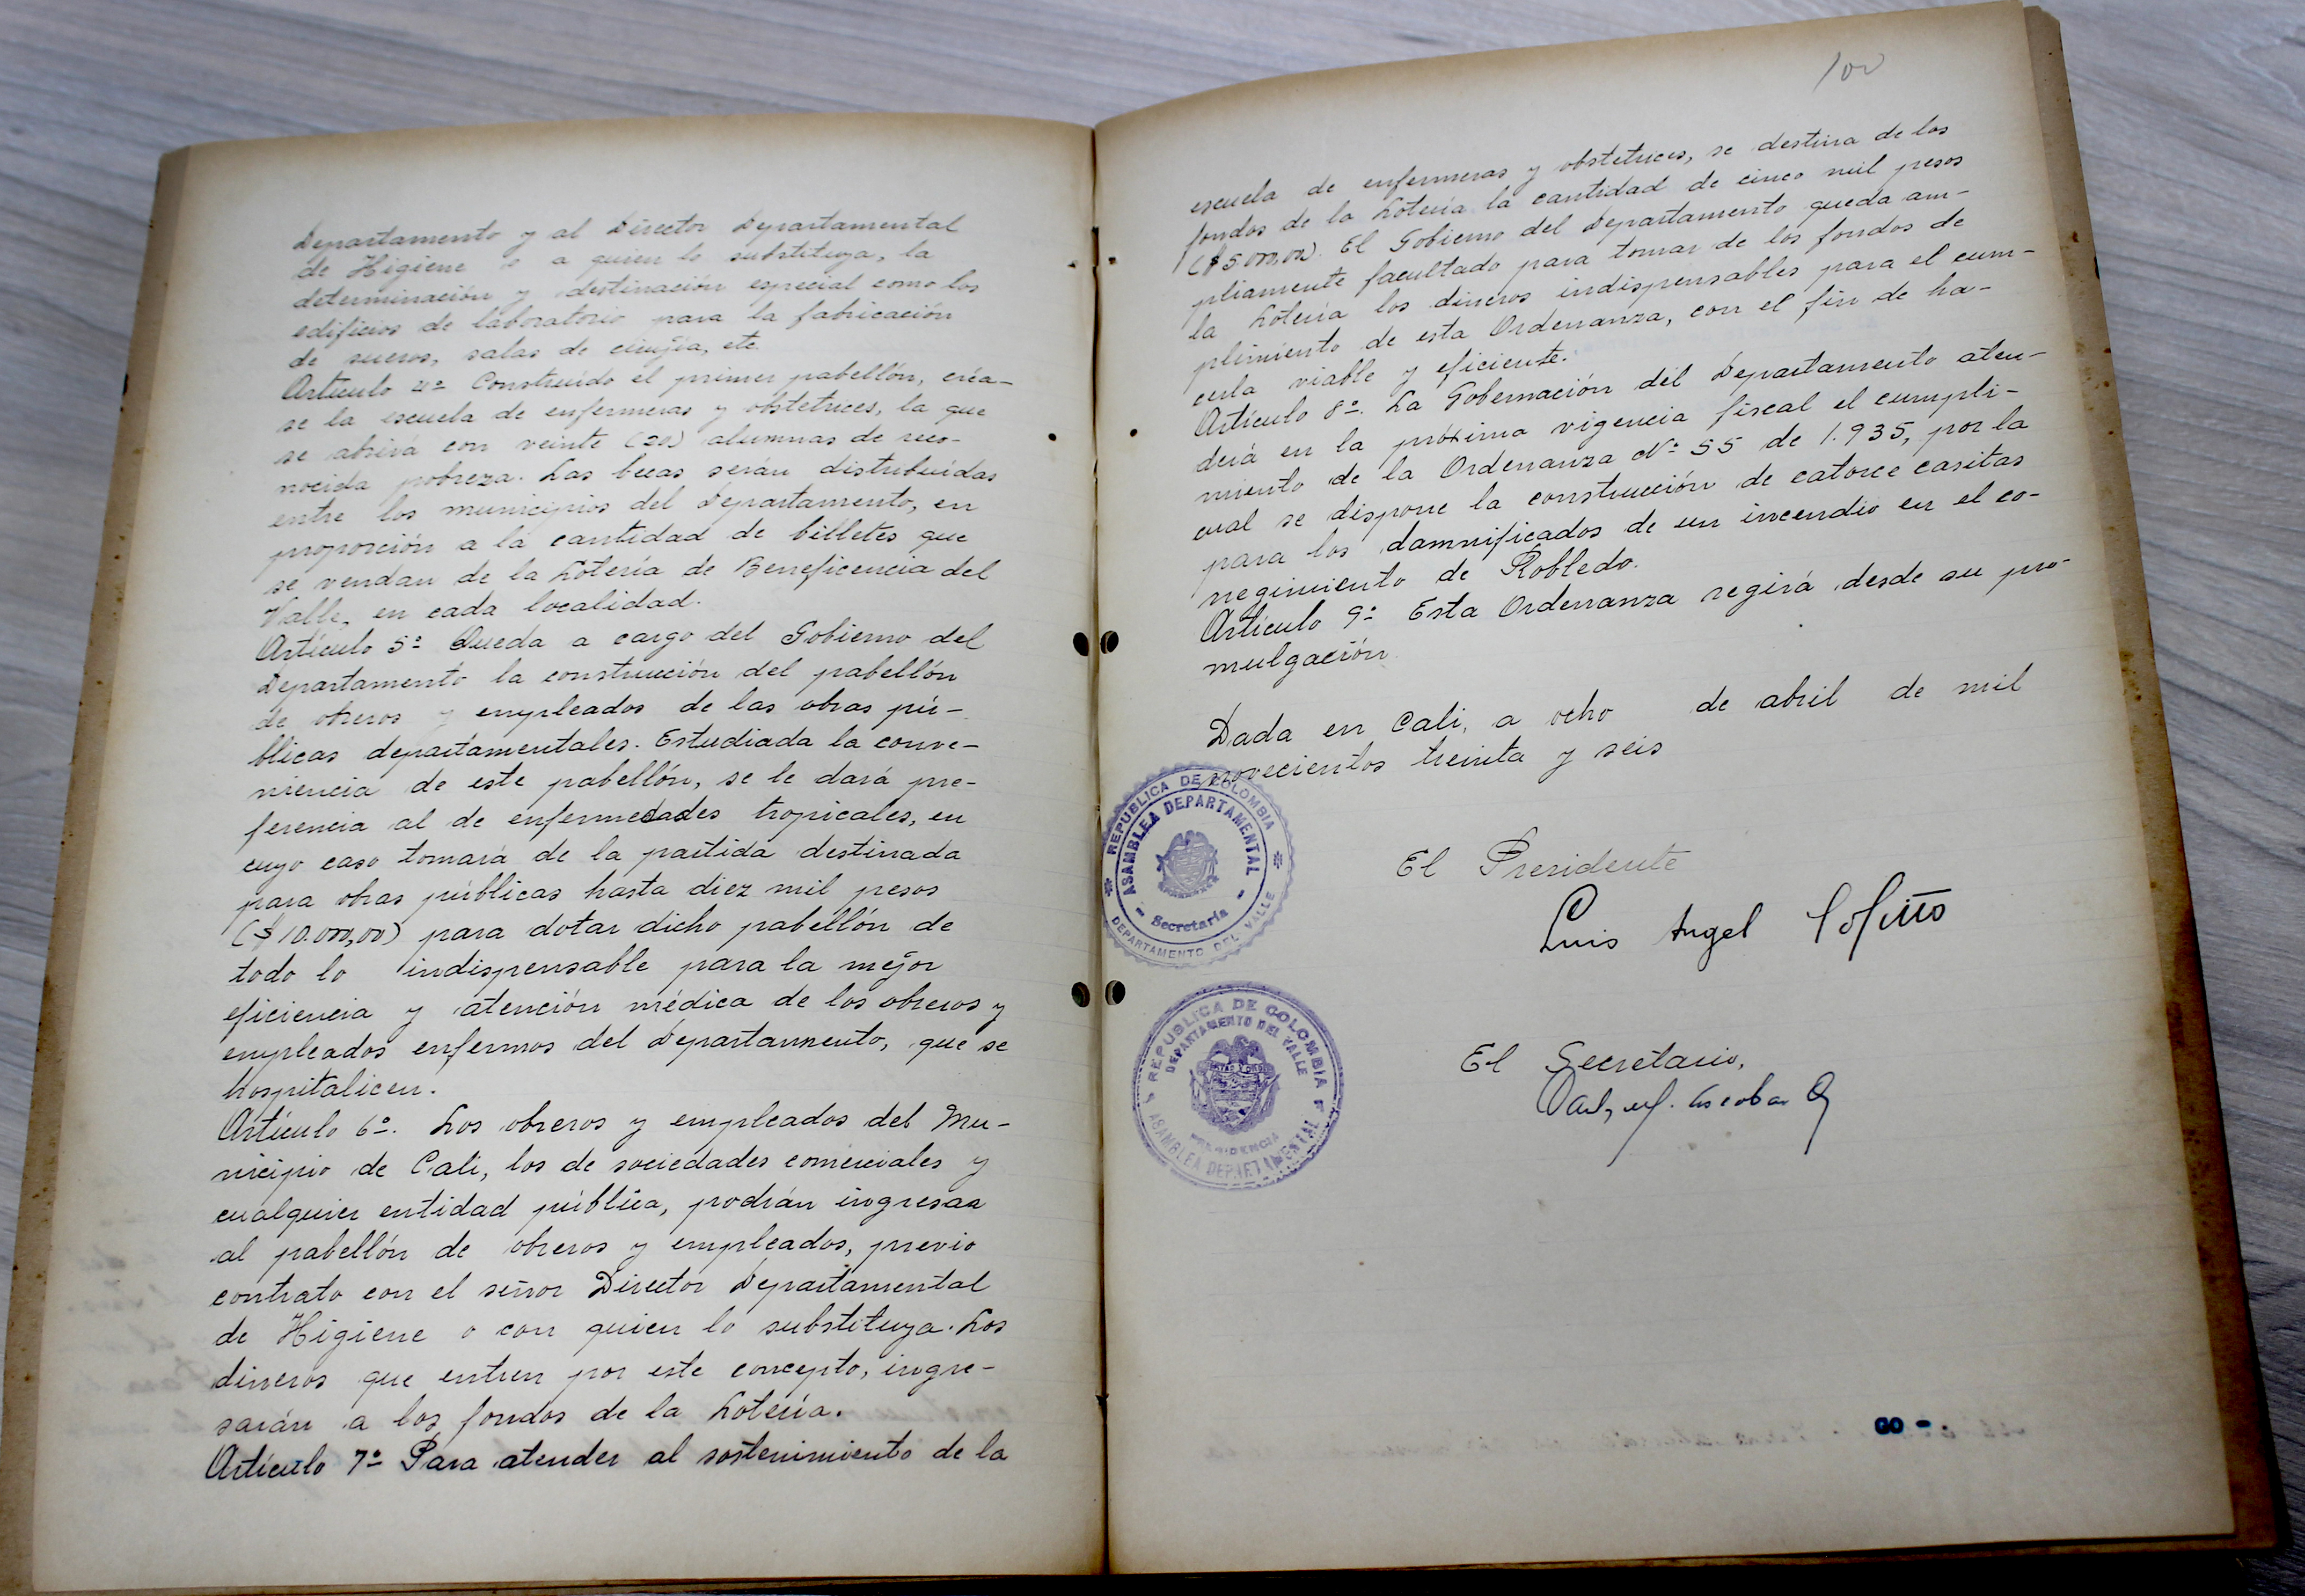 Departamento y al Director Departamental
de Higiene o a quien lo substituya, la
determinación y destinación especial como los
edificios de laboratorio para la fabricación
de sueros, salas de cirujía, etc.
Artículo 4º Construído el primer pabellón, créa-
se la escuela de enfermeras y obstetrices, la que
se abrirá con veinte (20) alumnas de reco-
nocida pobreza. Las becas serán distribuídas
entre los municipios del Departamento, en
proporción a la cantidad de billetes que
se vendan de la Lotería de Beneficencia del
Valle, en cada localidad.
Artículo 5º Queda a cargo del Gobierno del
Departamento la construcción del pabellón
de obreros y empleados de las obras pú-
blicas departamentales. Estudiada la conve-
niencia de este pabellón, se le dará pre-
ferencia al de enfermedades tropicales, en
cuyo caso tomará de la partida destinada
para obras públicas hasta diez mil pesos
($10.000,00) para dotar dicho pabellón de
todo lo indispensable para la mejor
eficiencia y atención médica de los obreros y
empleados enfermos del Departamento, que se
hospitalicen.
Artículo 6º. Los obreros y empleados del Mu-
nicipio de Cali, los de sociedades comerciales y
cualquier entidad pública, podrán ingresar
al pabellón de obreros y empleados, previo
contrato con el señor Director Departamental
de Higiene o con quien lo substituya. Los
dineros que entren por este concepto, ingre-
sarán a los fondos de la Lotería.
Artículo 7º Para atender al sostenimiento de la
100
escuela de enfermeras y obstetrices, se destina de los
fondos de la Lotería la cantidad de cinco mil pesos
($5.000,00). El Gobierno del Departamento queda am-
pliamente facultado para tomar de los fondos de
la Lotería los dineros indispensables para el cum-
plimiento de esta Ordenanza, con el fin de ha-
cerla viable y eficiente.
Artículo 8º. La Gobernación del Departamento aten-
derá en la próxima vigencia fiscal el cumpli-
miento de la Ordenanza Nº 55 de 1.935, por la
cual se dispone la construcción de catorce casitas
para los damnificados de un incendio en el co-
rregimiento de Robledo.
Artículo 9º Esta Ordenanza regirá desde su pro-
mulgación.
Dada en Cali, a ocho de abril de mil
novecientos treinta y seis
REPUBLICA DE COLOMBIA
ASAMBLEA DEPARTAMENTAL
Secretaria
DEPARTAMENTO DEL VALLE
El Presidente
Luis Angel
REPUBLICA DE COLOMBIA
DEPARTAMENTO DEL VALLE
PRESIDENCIA
ASAMBLEA DEPARTAMENTAL
El Secretario,
Escobar